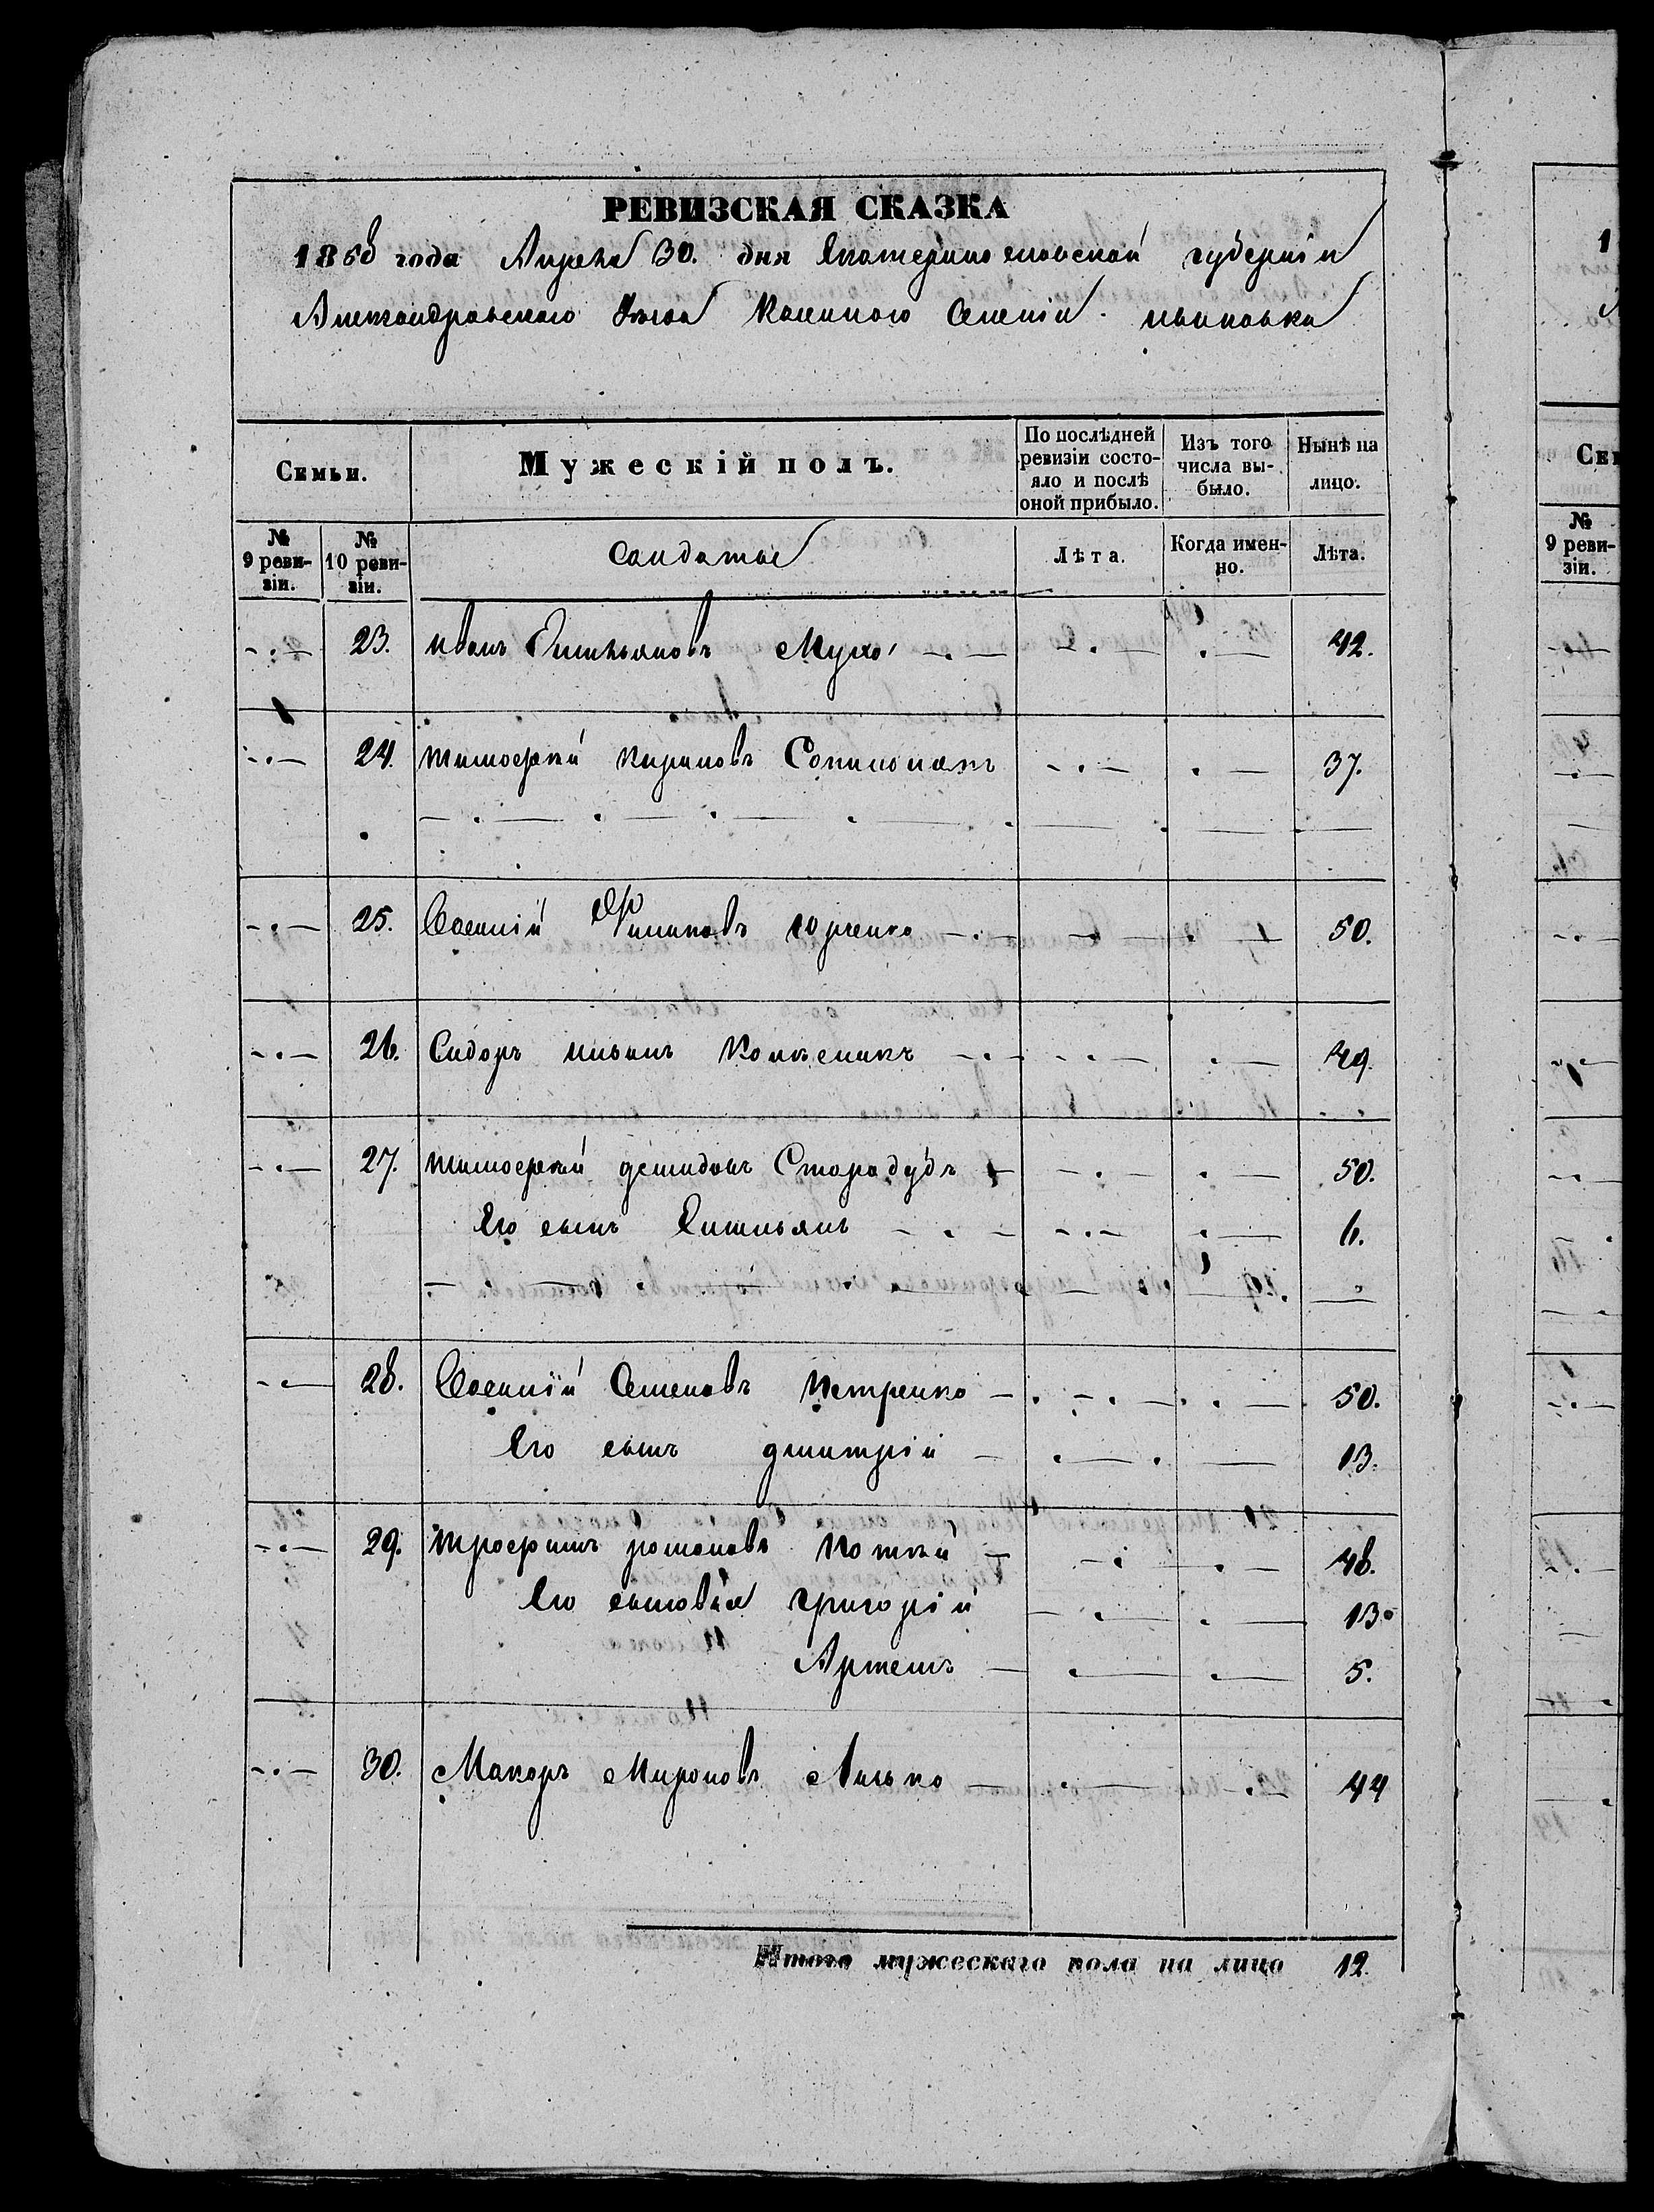 РЕВИЗСКАЯ СКАЗКА
1858 года Апреля 30. дня Екатеринославской губернiи
Александровскаго Уезда Казеннаго Селенiя
Семьи.
Мужескiй полъ.
По послѣдней ревизiи состо-
яло и послѣ
оной прибыло.
Изъ того
числа вы-
было.
Нынѣ на
лицо.
№
9 реви-
зiи.
№
10 реви-
зiи.
Солдаты
Лѣта.
Когда имен-
но.
Лѣта.
23. иванъ Емильяновъ Муха 42.
24. тимофей Кириловъ 37.
25. Евсевiй Филиповъ Юрченко 50.
26. Сидоръ Колѣсникъ 49.
27. тимофей демидовъ Стародубъ 50.
Его сынъ Емильянъ 6.
28. Евсевiй Семеновъ Петренко 50.
Его сынъ дмитрiй 13.
29. трофимъ романовъ 48.
Его сыновья григорiй 13
Артемъ 5.
30. Макаръ Мироновъ 44
Итого мужескаго пола на лицо 12.
1
Сем
№
9 реви-
зiи.